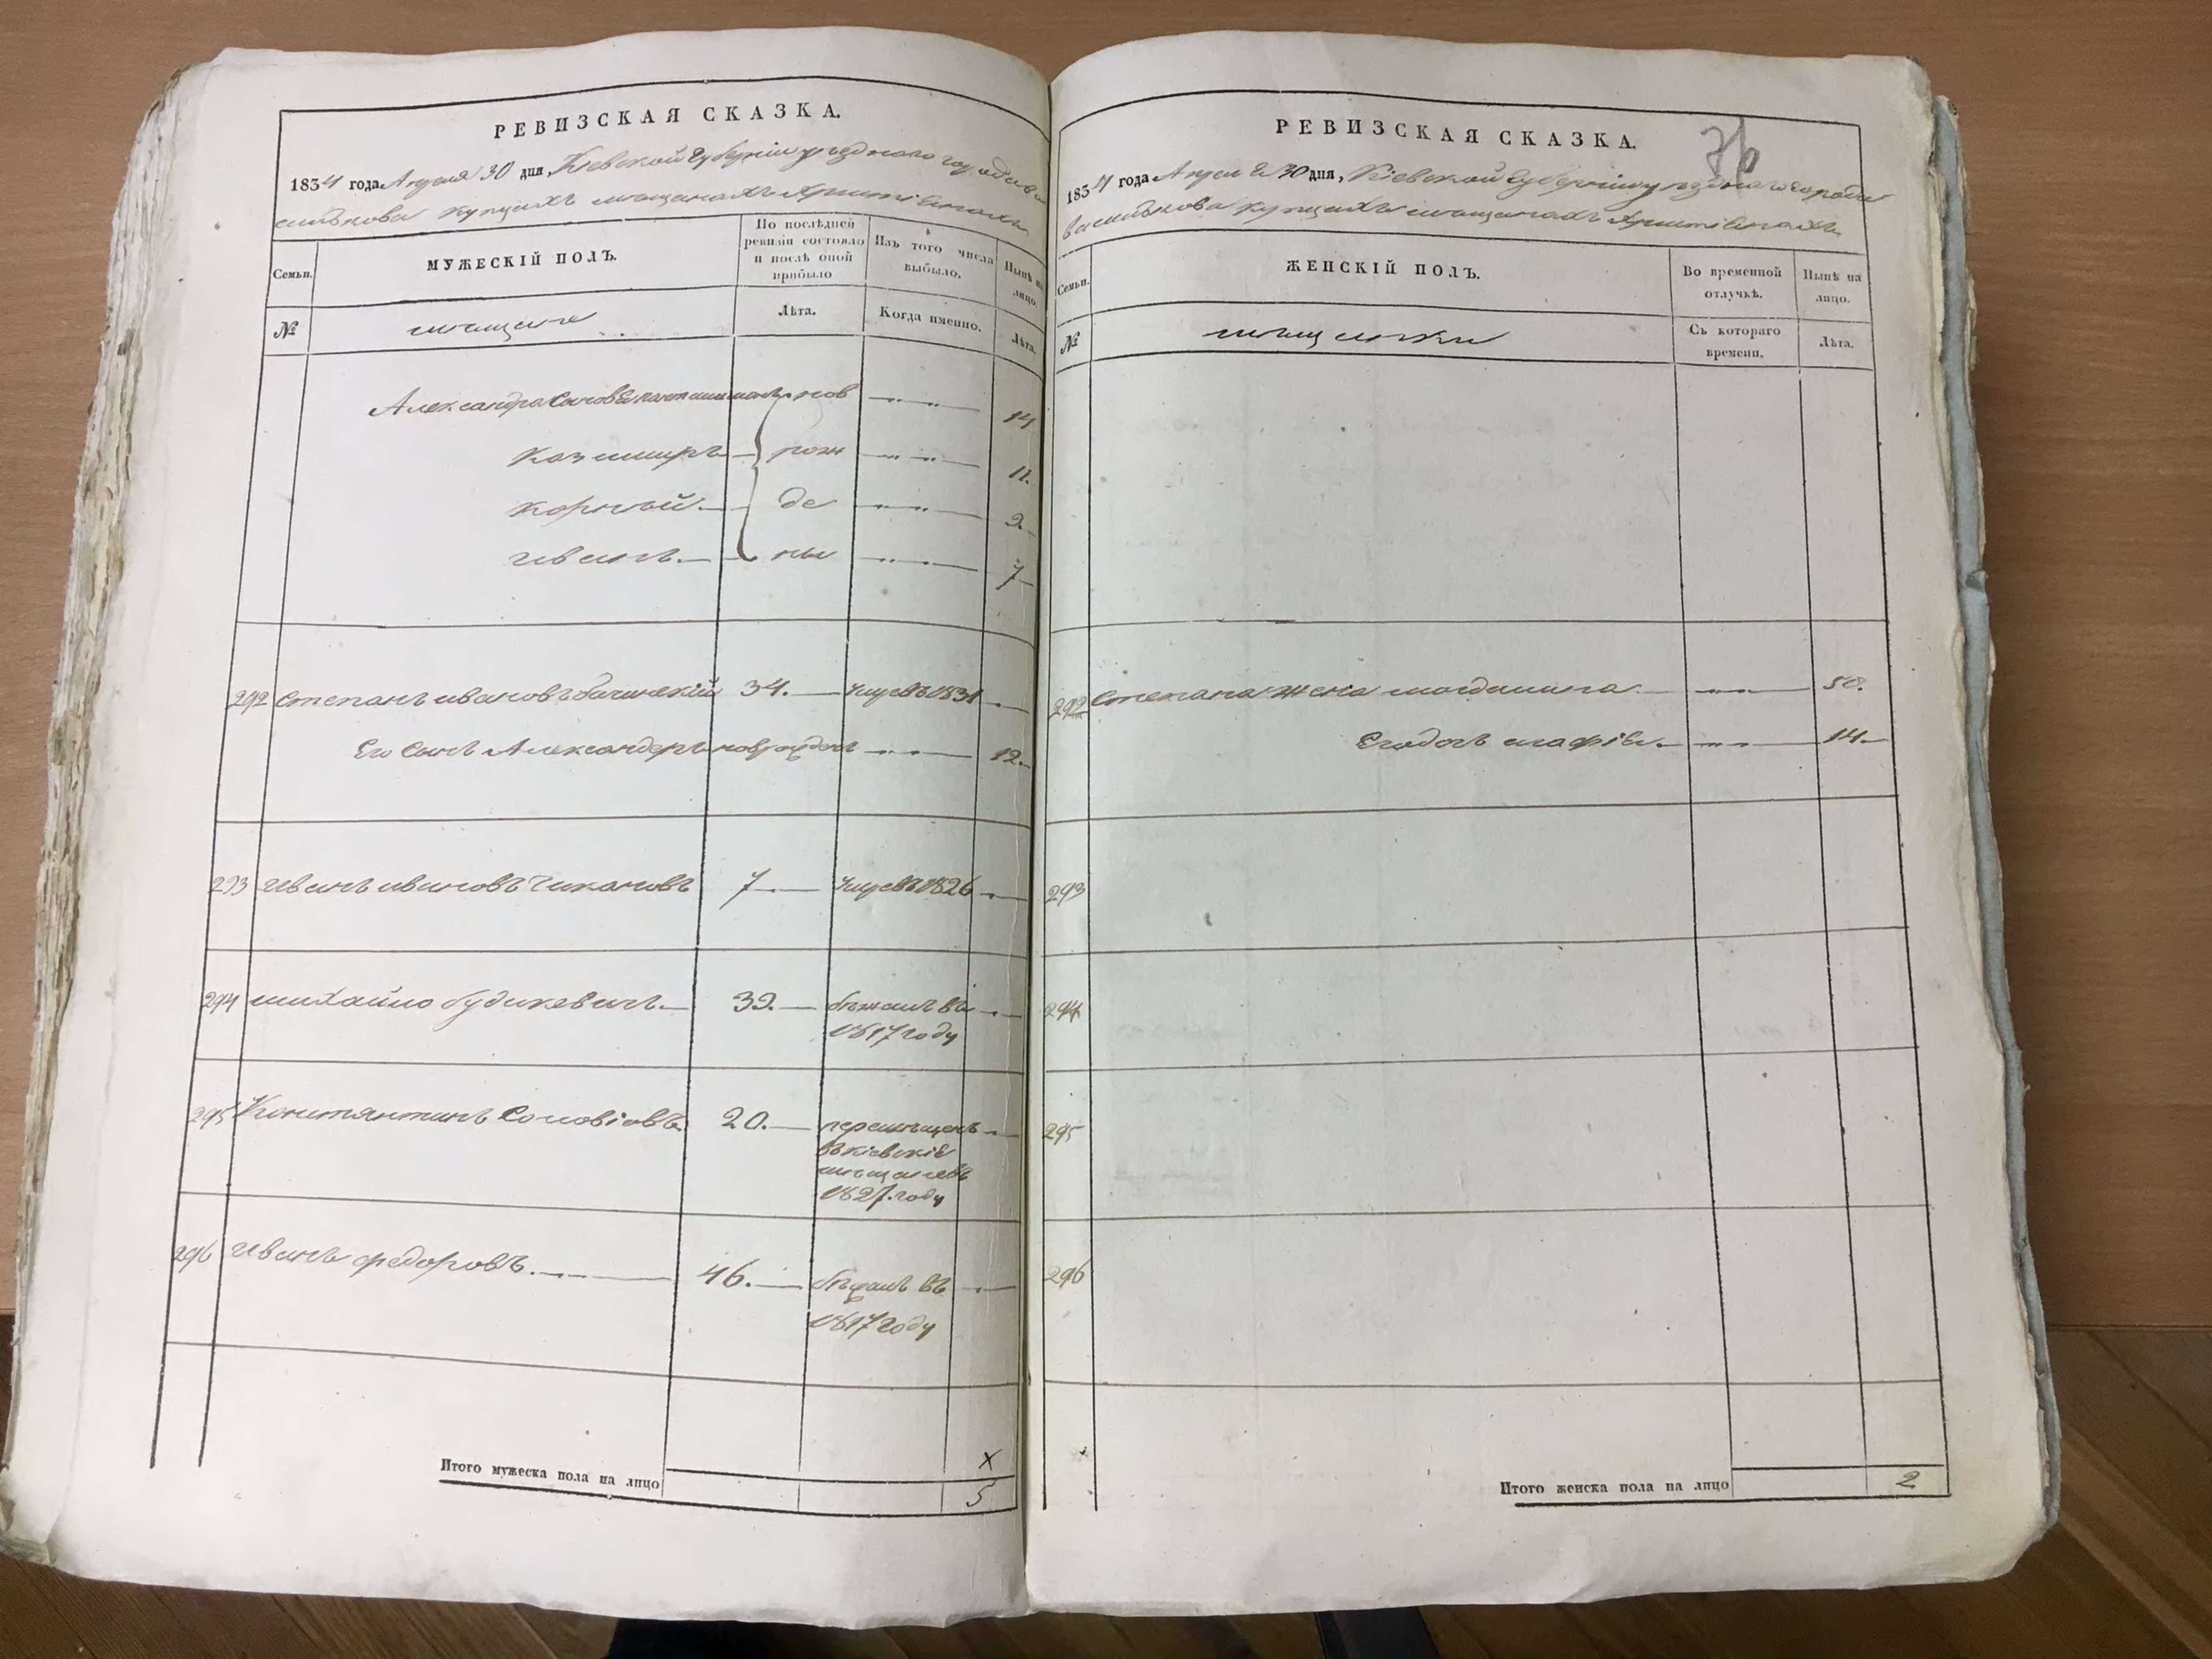 РЕВИЗСКАЯ СКАЗКА.
1834 года Апреля 30 дня, Кіевской Губерніи уездного города Ва
силькова купцахъ мещанахъ христіянахъ
Семьи.
МУЖЕСКІЙ ПОЛЪ.
По послѣдней ревизіи состояло и послѣ оной прибыло
Изъ того числа выбыло.
Нынѣ на лицо.
№
мещане
Лѣта.
Когда именно.
Лѣта.
Александра Сыновья нов 14
Казимиръ рож 11.
Корней де 9.
Иванъ ны 7
292 Степанъ Ивановъ Бачинскій 34. Умре въ 1831
Его Сынъ Александеръ новорожденъ 12.
293 Иванъ Ивановъ Чикановъ 7 Умре въ 1826
294 Михайло Будкевичъ 39. бежалъ въ
1817 году
295 Константинъ Соловіовъ 20. перемещенъ
въ кіевскіе
мещане въ
1827 году
296 Иванъ Федоровъ. 46. бежалъ въ
1817 году
Итого мужеска пола на лицо
x
5
РЕВИЗСКАЯ СКАЗКА.
76
1834 года Апреля 30 дня, Кіевской Губерніи уездного города
Василькова купцахъ мещанахъ христіянахъ
Семьи.
ЖЕНСКІЙ ПОЛЪ.
Во временной отлучкѣ.
Нынѣ на лицо.
№
мещанки
Съ котораго времени.
Лѣта.
292 Степана жена Магдалина 50.
Его дочь Агафія 14.
293
294
295
296
Итого женска пола на лицо 2